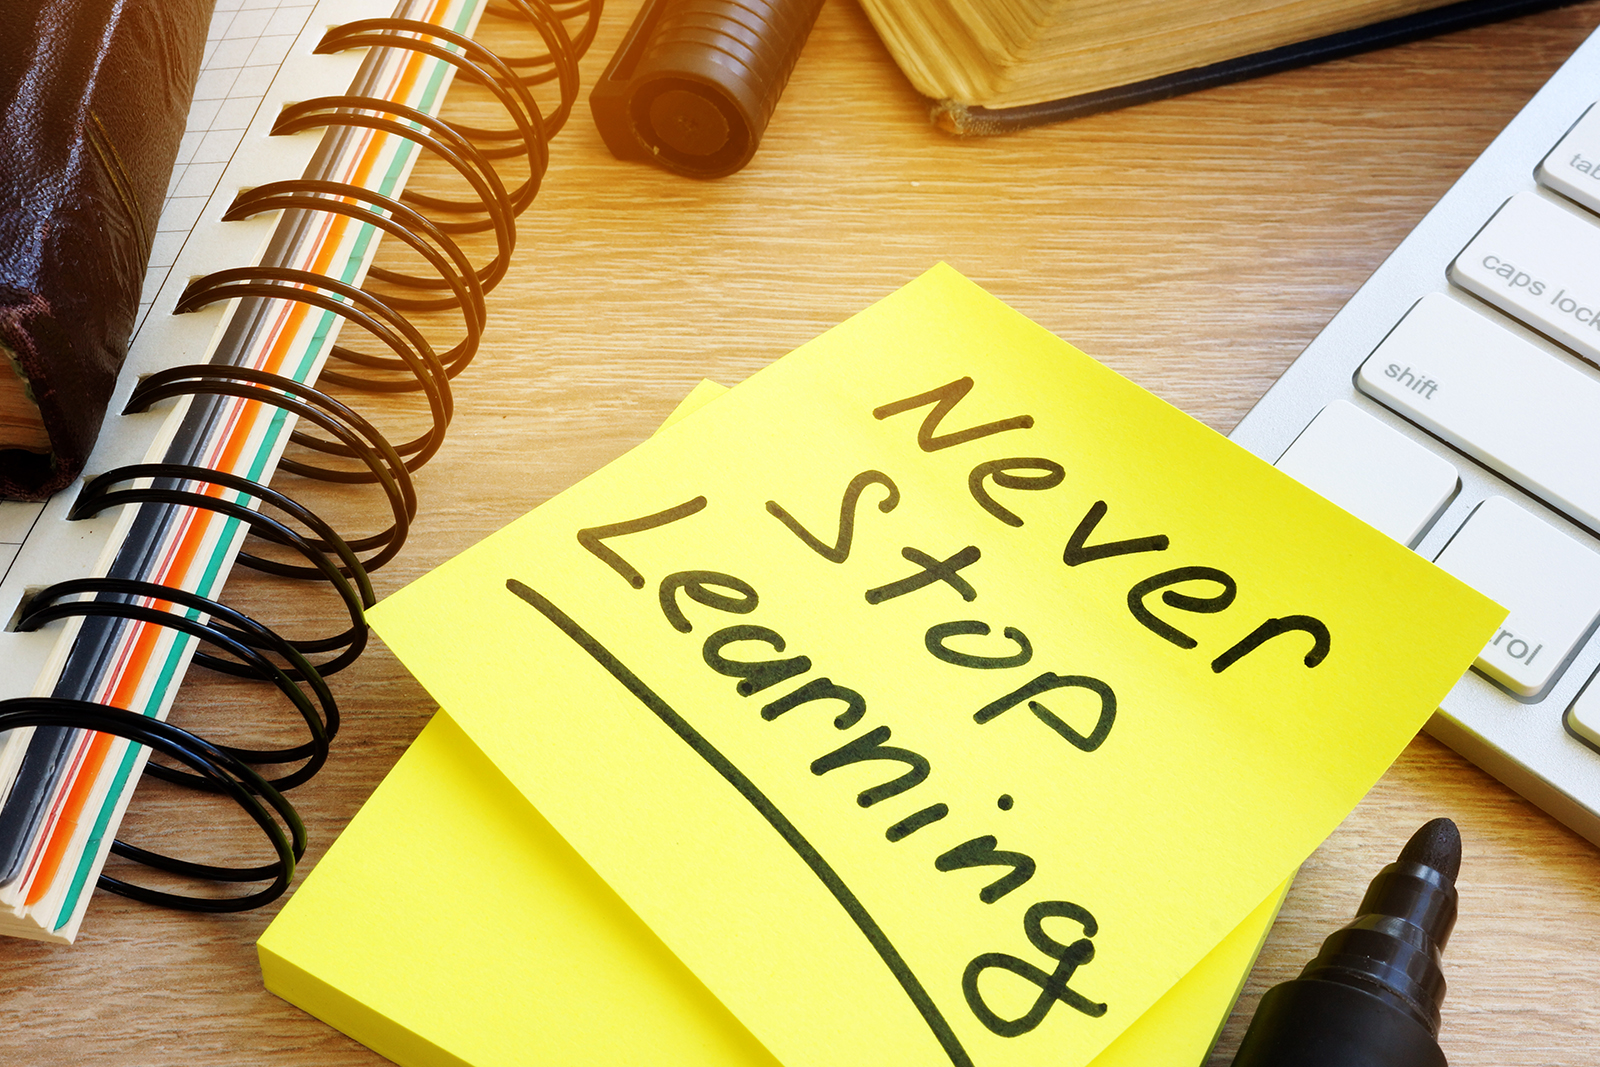 Never
Stop
Learning
tab
caps lock
shift